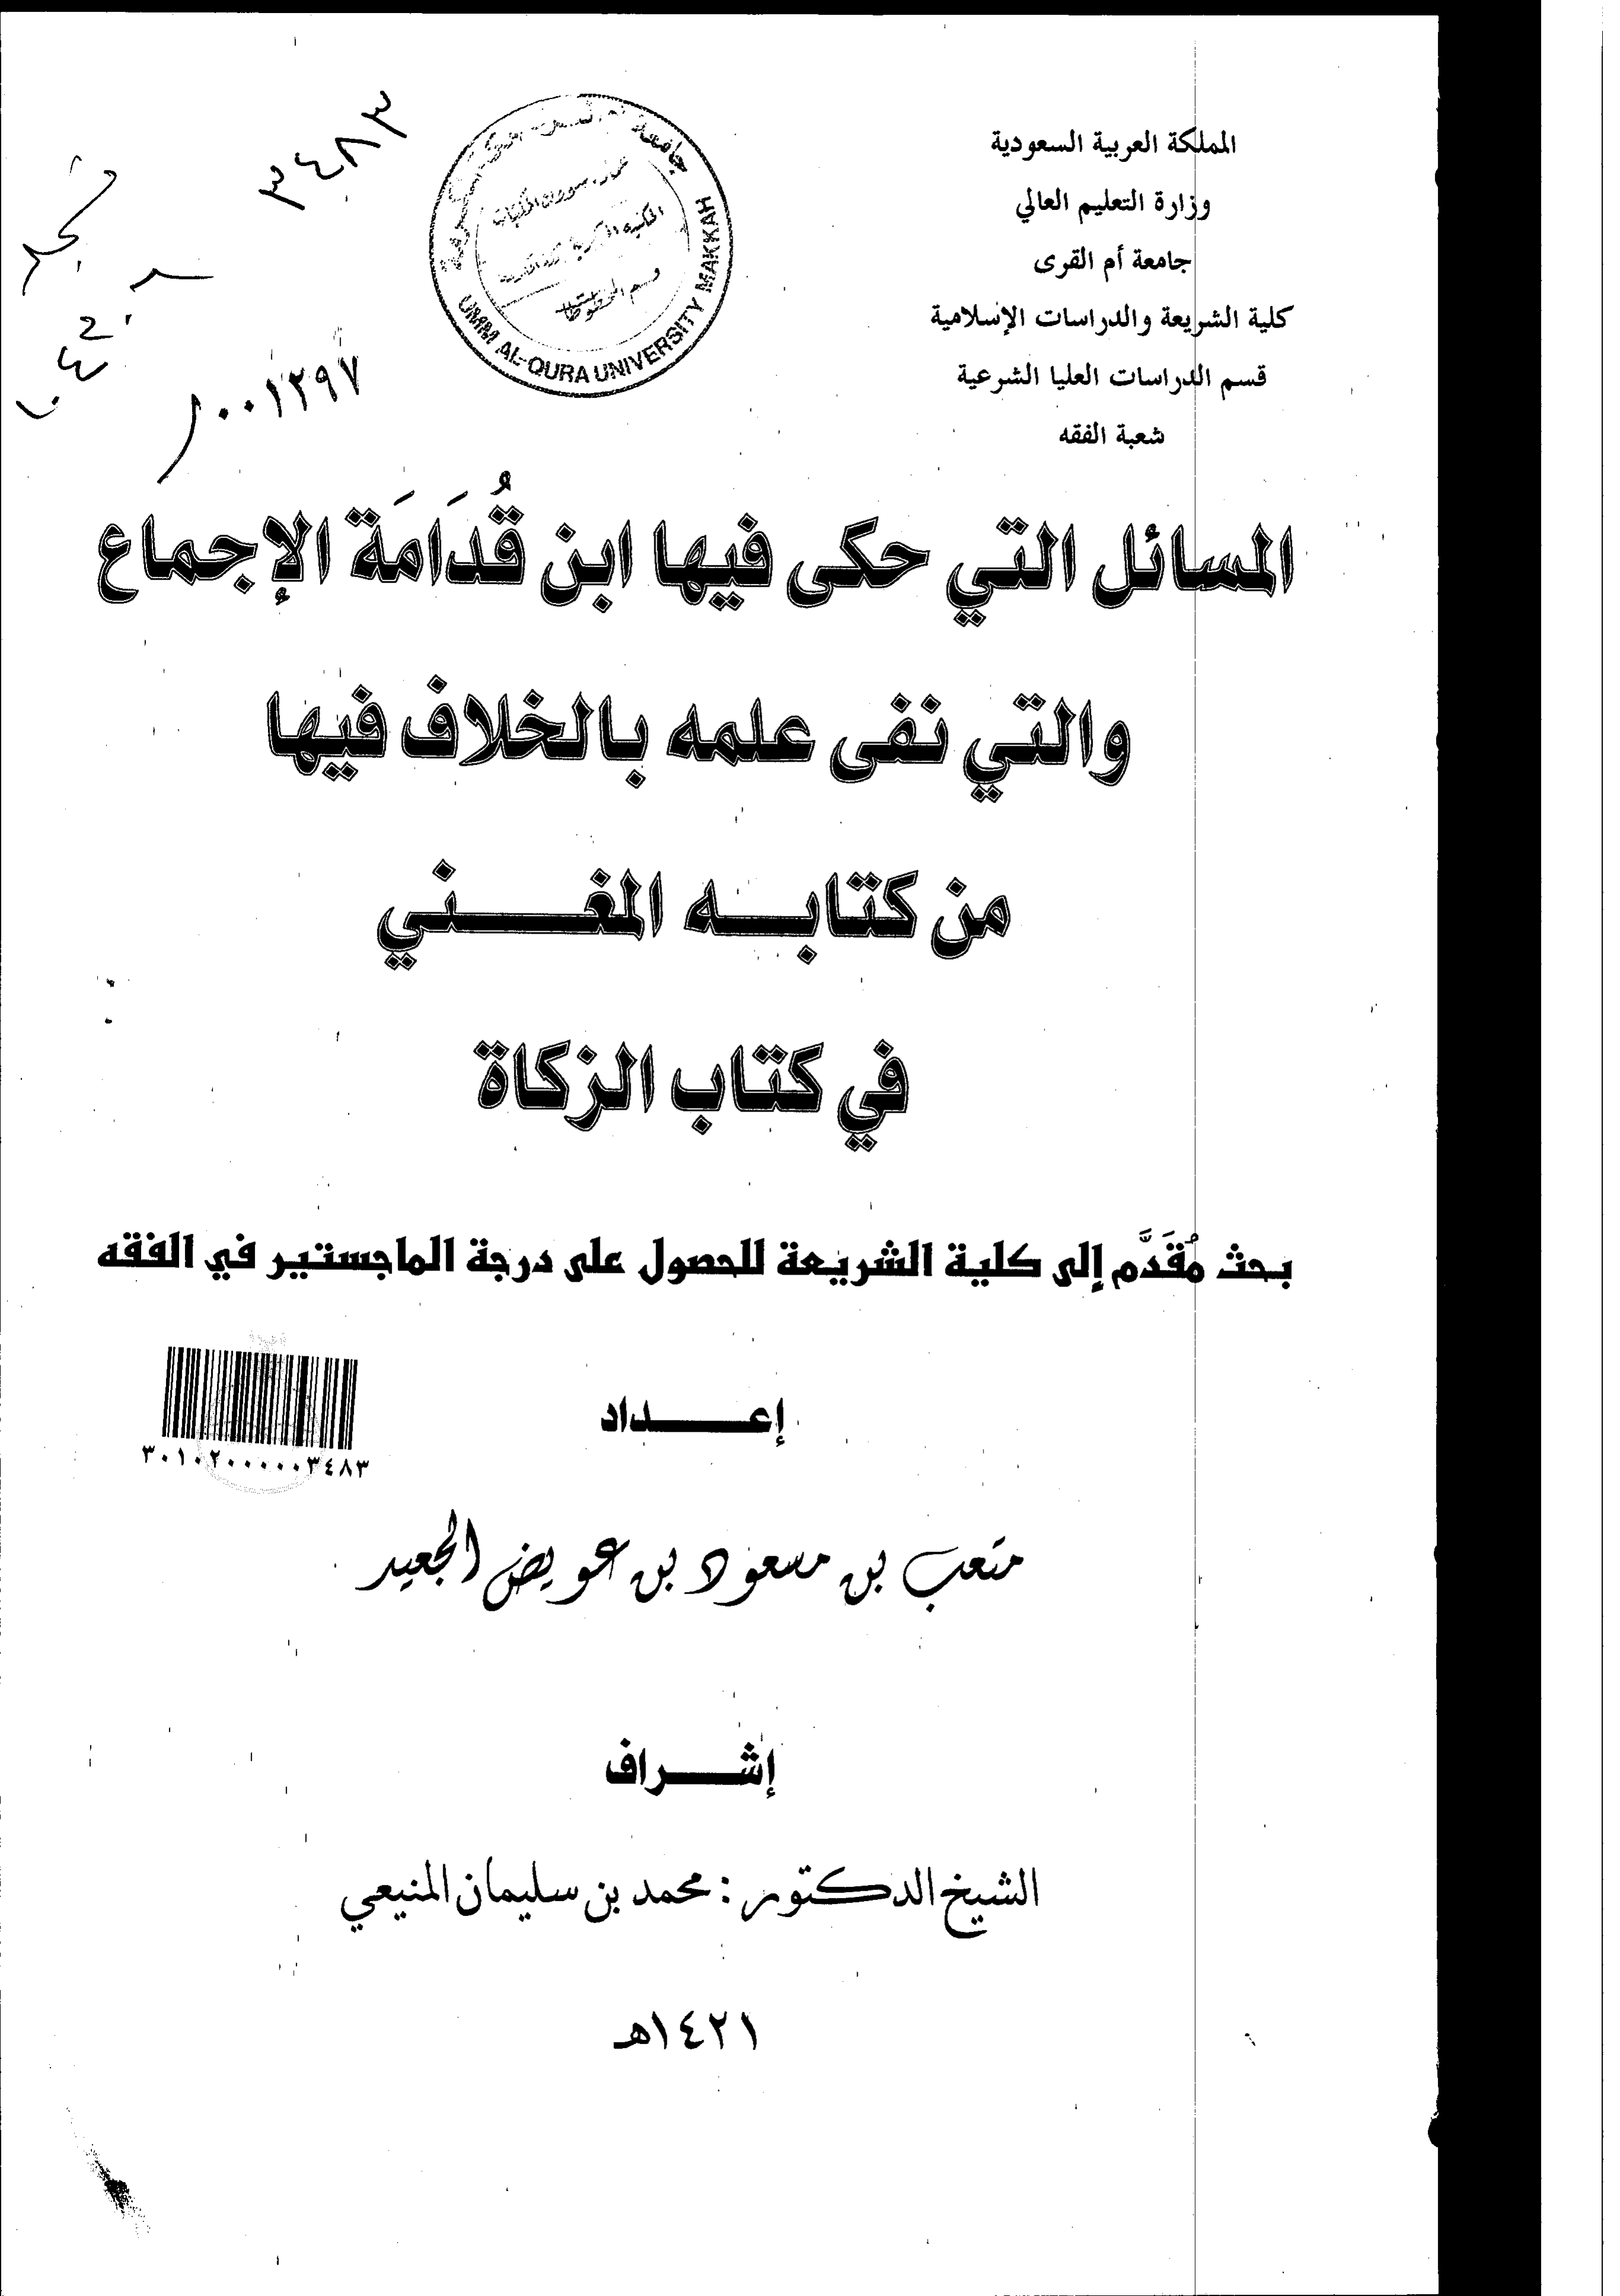 المملكة العربية السعودية
وزارة التعليم العالي
جامعة أم القرى
كلية الشريعة والدراسات الإسلامية
قسم الدراسات العليا الشرعية
شعبة الفقه
٣٤٨٣
جامعة
قسم المخطوطات
UMM AL-QURA UNIVERSITY MAKKAH
٠٠١٢٩٧
المسائل التي حكى فيها ابن قُدَامَة الإجماع
والتي نفى علمه بالخلاف فيها
من كتابـــه المغـــــني
في كتاب الزكاة
بحث مُقَدَّم إلى كلية الشريعة للحصول على درجة الماجستير في الفقه
إعـــــداد
٣٠١٠٢٠٠٠٠٠٣٤٨٣
متعب بن مسعود بن عويض الجعيد
إشـــــراف
الشيخ الدكتور : محمد بن سليمان المنيعي
١٤٢١هـ